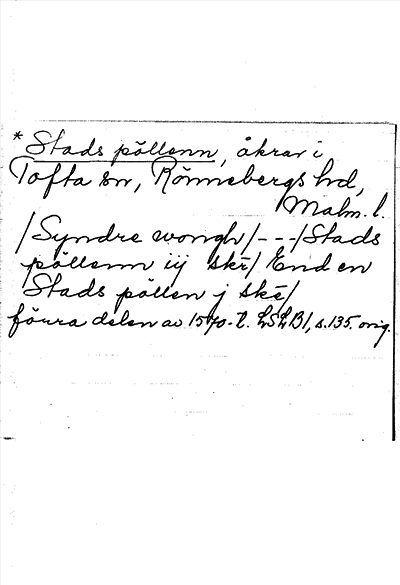 * Stads pöllenn, åkrar i
Tofta sn, Rönnebergs hd,
Malm. l.
/Syndre wongh/---/Stads
pöllenn iij skē/ End en
Stads pöllen j skē/
förra delen av 1570-t. LSLB1, s. 135. orig.